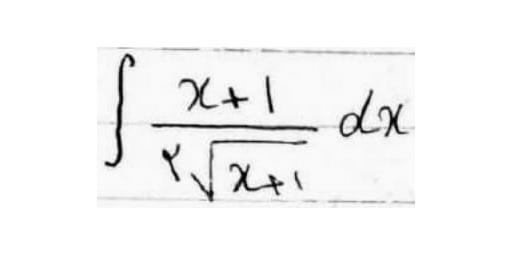 ∫ (x+1)/(۲√(x+1)) dx